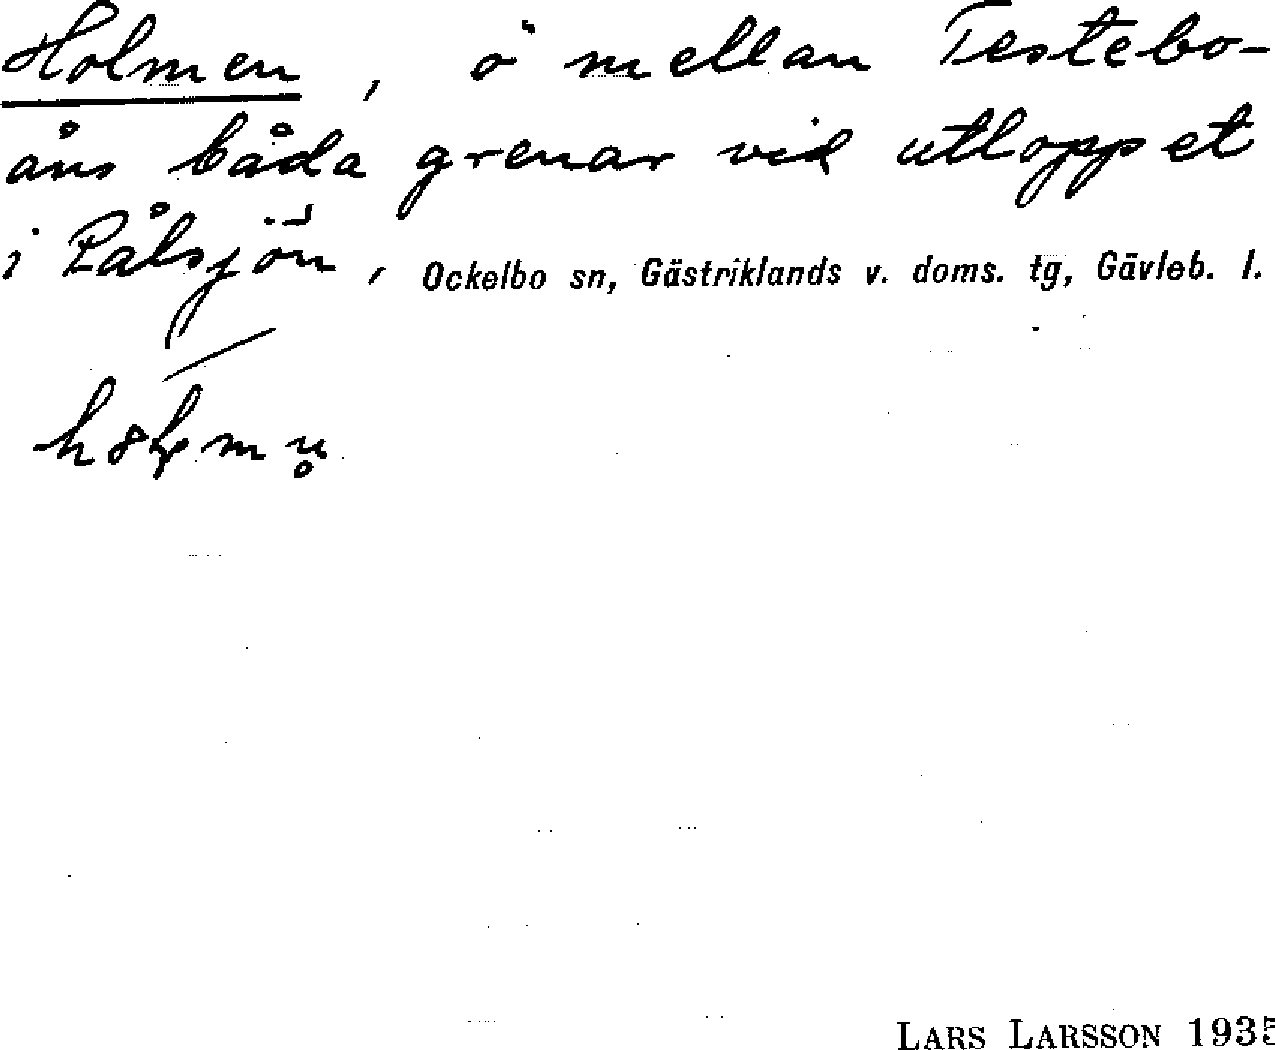 Holmen, ö mellan Testebo-
åns båda grenar vid utloppet
i Pålsjön, Ockelbo sn, Gästriklands v. doms. tg, Gävleb. l.
LARS LARSSON 1935